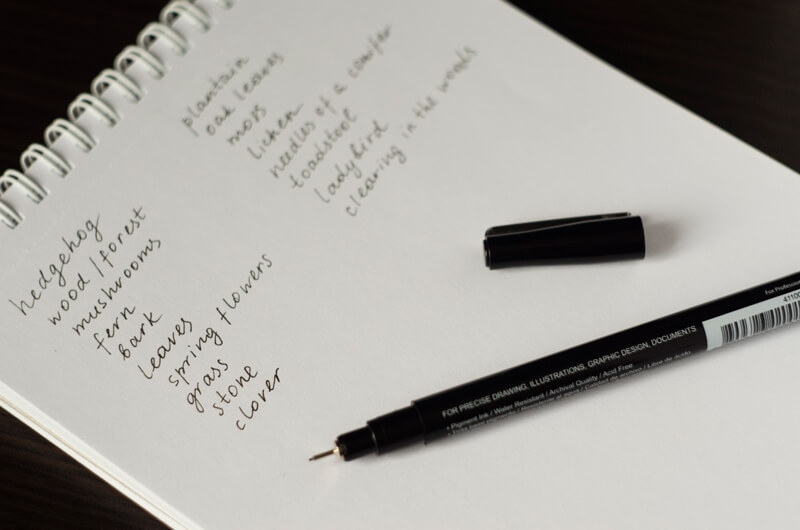 hedgehog
wood/forest
mushrooms
fern
bark
leaves
spring flowers
grass
stone
clover
plantain
oak leaves
moss
lichen
needles of a conifer
toadstool
ladybird
clearing in the woods
FOR PRECISE DRAWING, ILLUSTRATIONS, GRAPHIC DESIGN, DOCUMENTS
• Pigment Ink / Water Resistant / Archival Quality / Acid Free
For Professional